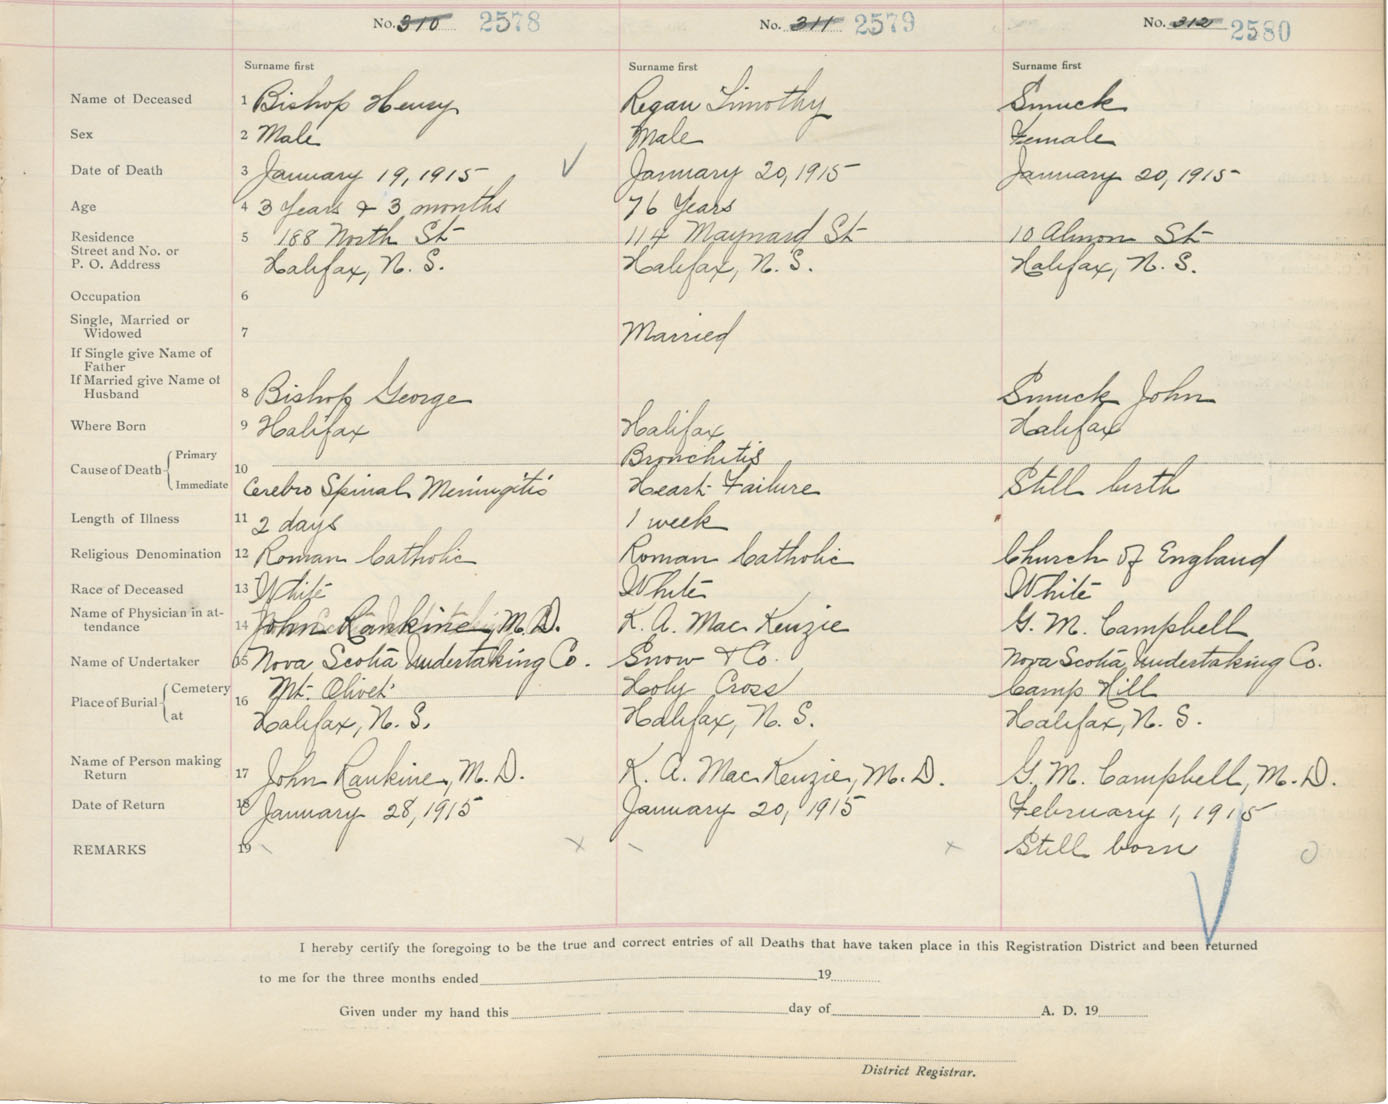 No. 310 2578 No. 311 2579 No. 312 2580
Surname first Surname first Surname first
Name of Deceased 1 Bishop Henry Regan Timothy Smuck
Sex 2 Male Male Female
Date of Death 3 January 19, 1915 January 20, 1915 January 20, 1915
Age 4 3 Years & 3 months 76 Years
Residence 5 188 North St 114 Maynard St 10 Almon St
Street and No. or
P. O. Address Halifax, N. S. Halifax, N. S. Halifax, N. S.
Occupation 6
Single, Married or
Widowed 7 Married
If Single give Name of
Father
If Married give Name of
Husband 8 Bishop George Smuck John
Where Born 9 Halifax Halifax Halifax
Primary Bronchitis
Cause of Death 10
Immediate Cerebro Spinal Meningitis Heart Failure Still birth
Length of Illness 11 2 days 1 week "
Religious Denomination 12 Roman Catholic Roman Catholic Church of England
Race of Deceased 13 White White White
Name of Physician in at-
tendance 14 John Rankine, M.D. K. A. MacKenzie G. M. Campbell
Name of Undertaker 15 Nova Scotia Undertaking Co. Snow & Co. Nova Scotia Undertaking Co.
Cemetery Mt. Olivet Holy Cross Camp Hill
Place of Burial 16
at Halifax, N. S. Halifax, N. S. Halifax, N. S.
Name of Person making
Return 17 John Rankine, M.D. K. A. MacKenzie, M.D. G. M. Campbell, M.D.
Date of Return 18 January 28, 1915 January 20, 1915 February 1, 1915
REMARKS 19 Still born
I hereby certify the foregoing to be the true and correct entries of all Deaths that have taken place in this Registration District and been returned
to me for the three months ended 19
Given under my hand this day of A. D. 19
District Registrar.